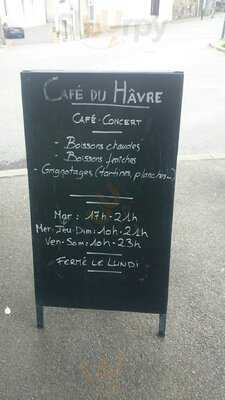 CAFÉ DU HÂVRE
CAFÉ-CONCERT
- Boissons chaudes
- Boissons fraîches
- Grignotages (tartines, planches...)
Mar : 17h-21h
Mer-Jeu-Dim : 10h-21h
Ven-Sam : 10h-23h
FERMÉ LE LUNDI